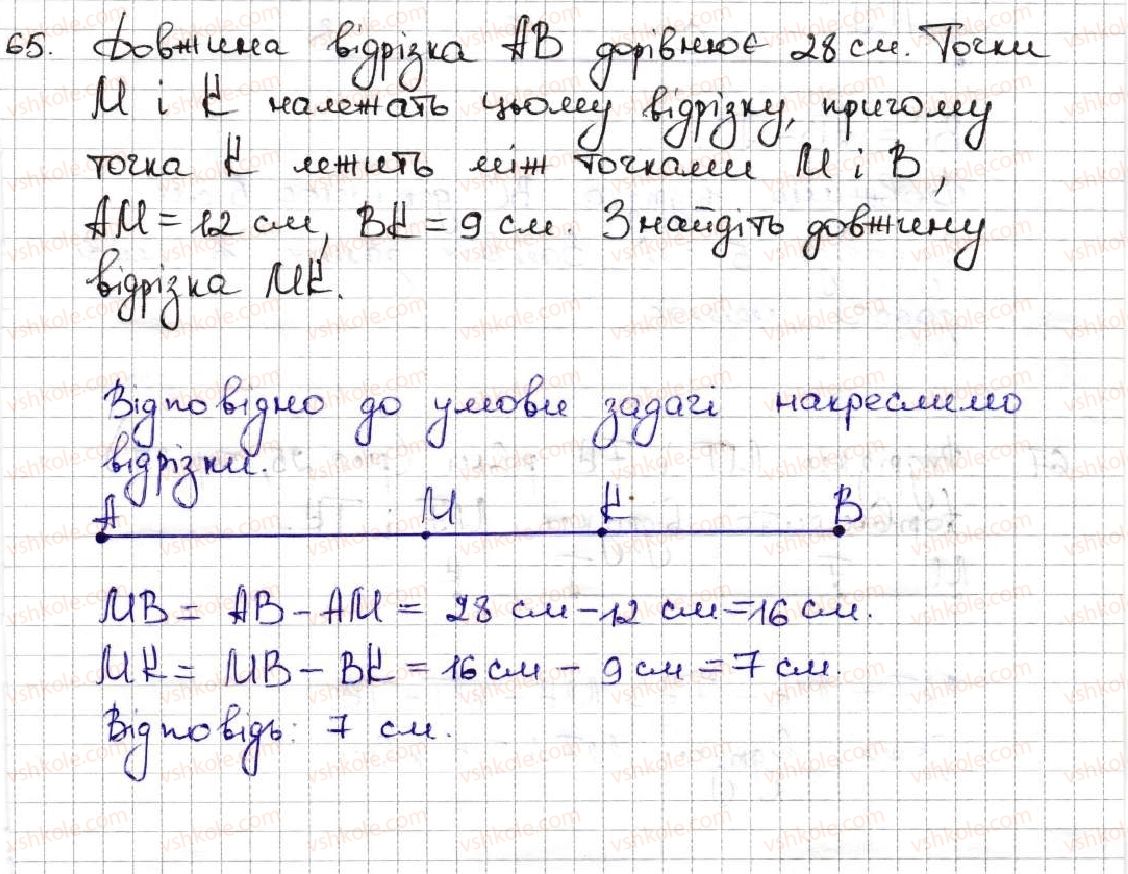 65. Довжина відрізка AB дорівнює 28 см. Точки
M і K належать цьому відрізку, причому
точка K лежить між точками M і B,
AM = 12 см, BK = 9 см. Знайдіть довжину
відрізка MK.
Відповідно до умови задачі накреслимо
відрізки.
A M K B
MB = AB - AM = 28 см - 12 см = 16 см.
MK = MB - BK = 16 см - 9 см = 7 см.
Відповідь: 7 см.